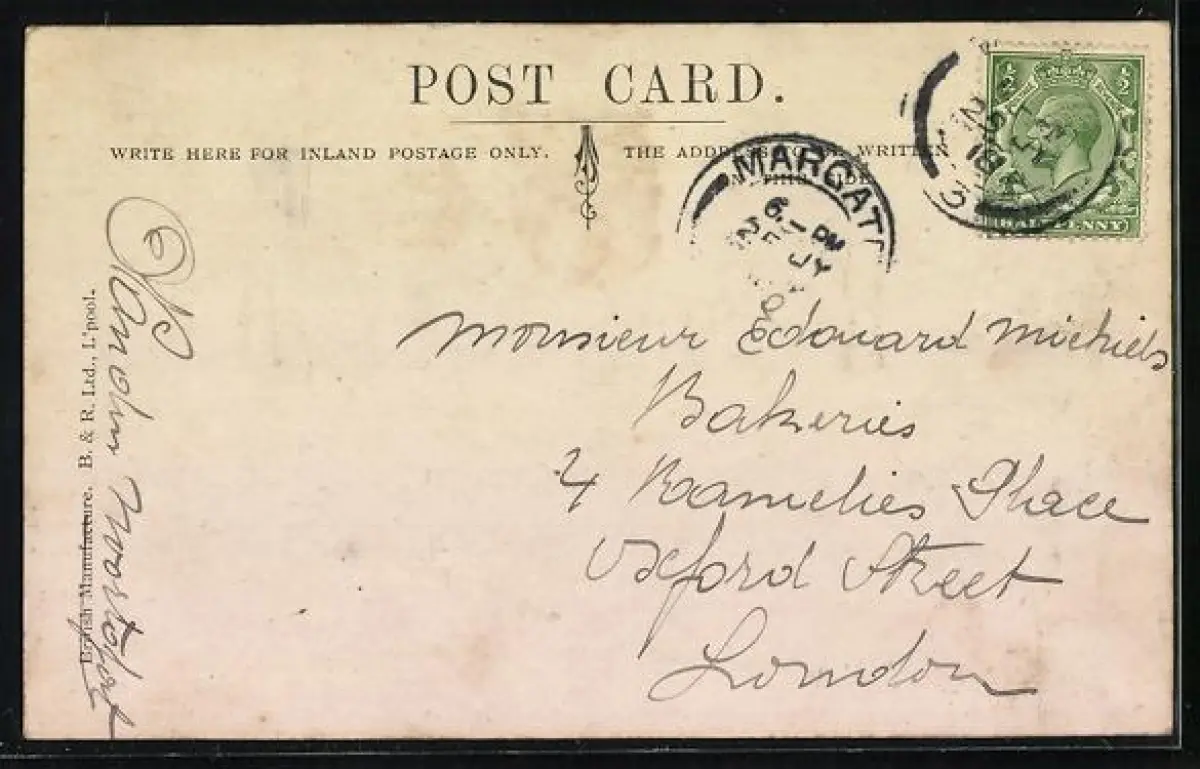 POST CARD.
WRITE HERE FOR INLAND POSTAGE ONLY.
THE ADDRESS WRITTEN
MARGATE
6 - PM
JY
½ ½
HALFPENNY
Monsieur Edouard Michiels
Bakeries
4 Ramelies Place
Oxford Street
London
British Manufacture. B. & R. Ltd., L'pool.